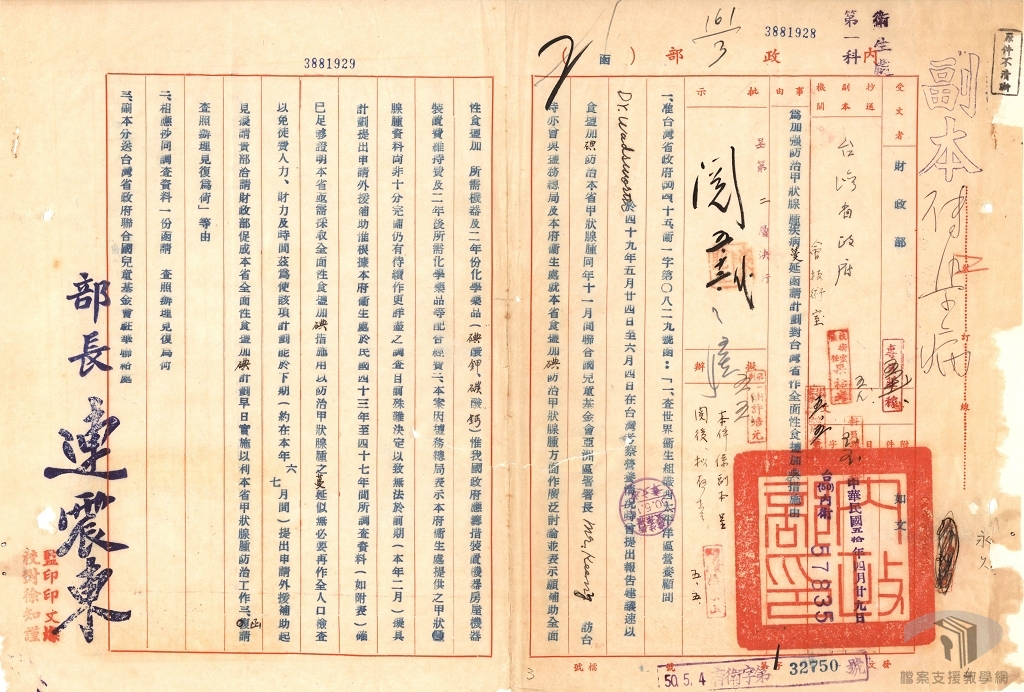 衛生處
第一科
3881928
161/3
內政部(函)
原件不清晰
副本
受文者
財政部
抄送副本機關
台灣省政府
會技術室
事由
為加強防治甲狀腺腫疾病蔓延函請計劃對台灣省作全面性食鹽加碘措施由
批示
呈第二層決行
閱
擬辦
本件係副本呈
閱後
附件
如文
中華民國五拾年四月廿九日
台(50)內衛
57835
內政部印
永久
訂
線
一、准台灣省政府函四十五府衛一字第〇八二二九號函：「一、查世界衛生組織西太平洋區營養顧問
Dr. Wadsworth於四十九年五月廿四日至六月四日在台灣考察營養情況時曾提出報告建議速以
食鹽加碘防治本省甲狀腺腫同年十一月間聯合國兒童基金會亞洲區署署長Mr. Keany訪台
時亦曾與鹽務總局及本府衛生處就本省食鹽加碘防治甲狀腺腫方面作廣泛討論並表示願補助全面
3
檔號
發文
32750
號
50.5.4
台衛字第
3881929
性食鹽加　所需機器及二年份化學藥品(碘酸鉀、碳酸鈣)惟我國政府應籌措裝置機器房屋機器
裝置費維持費及二年後所需化學藥品等配合經費二、本案因鹽務總局表示本府衛生處提供之甲狀
腺腫資料尚非十分完備仍有待續作更詳盡之調查目前殊難決定以致無法於前期(本年二月)擬具
計劃提出申請外援補助惟根據本府衛生處於民國四十三年至四十七年間所調查資料(如附表)確
已足够證明本省或需採取全面性食鹽加碘措施用以防治甲狀腺腫之蔓延似無必要再作全人口檢查
以免徒費人力、財力及時間茲為使該項計劃能於下期(約在本年六七月間)提出申請外援補助起
見擬請貴部洽請財政部促成本省全面性食鹽加碘計劃早日實施以利本省甲狀腺腫防治工作三、復請
查照辦理見復為荷」等由
二、相應抄同調查資料一份函請　查照辦理見復為荷
三、副本分送台灣省政府聯合國兒童基金會駐華聯絡處
部長　連震東
監印印文煥
校對徐知謹
檔案支援教學網